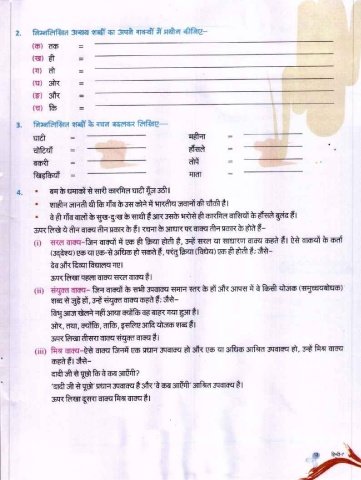 2. निम्नलिखित अव्यय शब्दों का अपने वाक्यों में प्रयोग कीजिए–
(क) तक =
(ख) ही =
(ग) तो =
(घ) ओर =
(ङ) और =
(च) कि =
3. निम्नलिखित शब्दों के वचन बदलकर लिखिए–
घाटी = महीना =
चोटियाँ = हौंसले =
बकरी = तोपें =
खिड़कियाँ = माता =
4. • बम के धमाकों से सारी कारगिल घाटी गूँज उठी।
• शाहीन जानती थी कि गाँव के उस कोने में भारतीय जवानों की चौकी है।
• वे ही गाँव वालों के सुख-दुःख के साथी हैं और उनके भरोसे ही कारगिल वासियों के हौंसले बुलंद हैं।
ऊपर लिखे ये तीन वाक्य तीन प्रकार के हैं। रचना के आधार पर वाक्य तीन प्रकार के होते हैं–
(i) सरल वाक्य–जिन वाक्यों में एक ही क्रिया होती है, उन्हें सरल या साधारण वाक्य कहते हैं। ऐसे वाक्यों के कर्ता
(उद्देश्य) एक या एक-से अधिक हो सकते हैं, परंतु क्रिया (विधेय) एक ही होती है; जैसे–
देव और दिव्या विद्यालय गए।
ऊपर लिखा पहला वाक्य सरल वाक्य है।
(ii) संयुक्त वाक्य–जिन वाक्यों के सभी उपवाक्य समान स्तर के हों और आपस में वे किसी योजक (समुच्चयबोधक)
शब्द से जुड़े हों, उन्हें संयुक्त वाक्य कहते हैं; जैसे–
विभु आज खेलने नहीं आया क्योंकि वह बाहर गया हुआ है।
और, तथा, क्योंकि, ताकि, इसलिए आदि योजक शब्द हैं।
ऊपर लिखा तीसरा वाक्य संयुक्त वाक्य है।
(iii) मिश्र वाक्य–ऐसे वाक्य जिनमें एक प्रधान उपवाक्य हो और एक या अधिक आश्रित उपवाक्य हो, उन्हें मिश्र वाक्य
कहते हैं; जैसे–
दादी जी से पूछो कि वे कब आएँगी?
'दादी जी से पूछो' प्रधान उपवाक्य है और 'वे कब आएँगी' आश्रित उपवाक्य है।
ऊपर लिखा दूसरा वाक्य मिश्र वाक्य है।